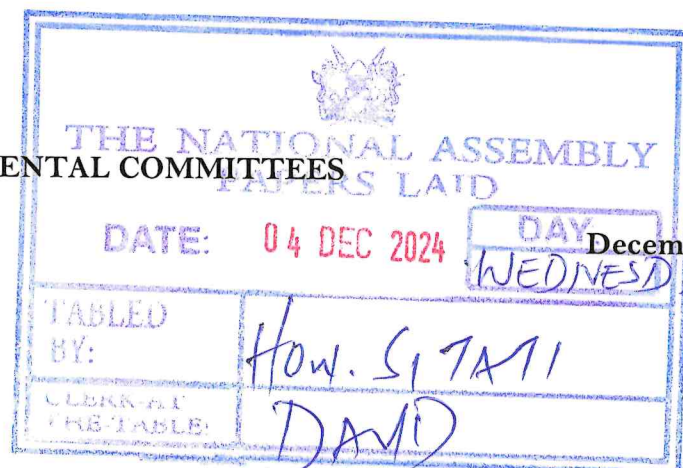 THE NATIONAL ASSEMBLY
ENTAL COMMITTEES
PAPERS LAID
DATE: 04 DEC 2024
DAY
Decem
WEDNESD
TABLED BY:
Hon. SITATI
CLERK-AT THE-TABLE:
DAVID